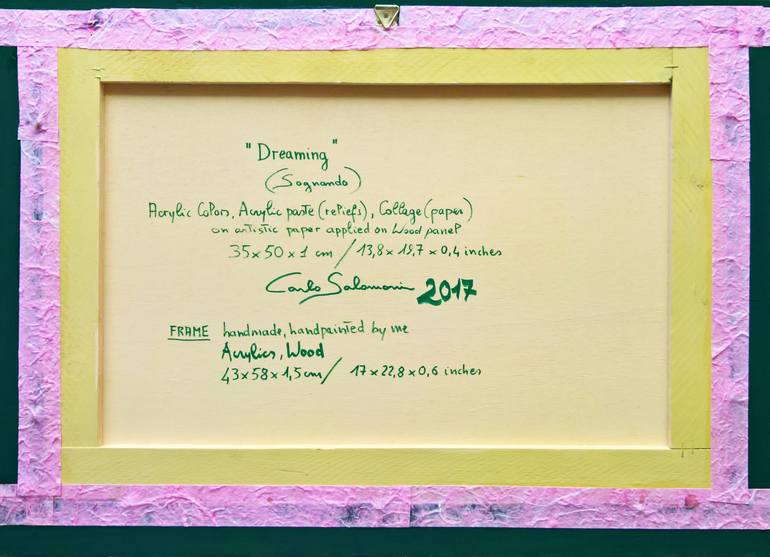 "Dreaming"
(Sognando)
Acrylic Colors, Acrylic paste (reliefs), Collage (paper)
on artistic paper applied on Wood panel
35 x 50 x 1 cm / 13,8 x 19,7 x 0,4 inches
Carlo Salomoni 2017
FRAME handmade, handpainted by me
Acrylics, Wood
43 x 58 x 1,5 cm / 17 x 22,8 x 0,6 inches